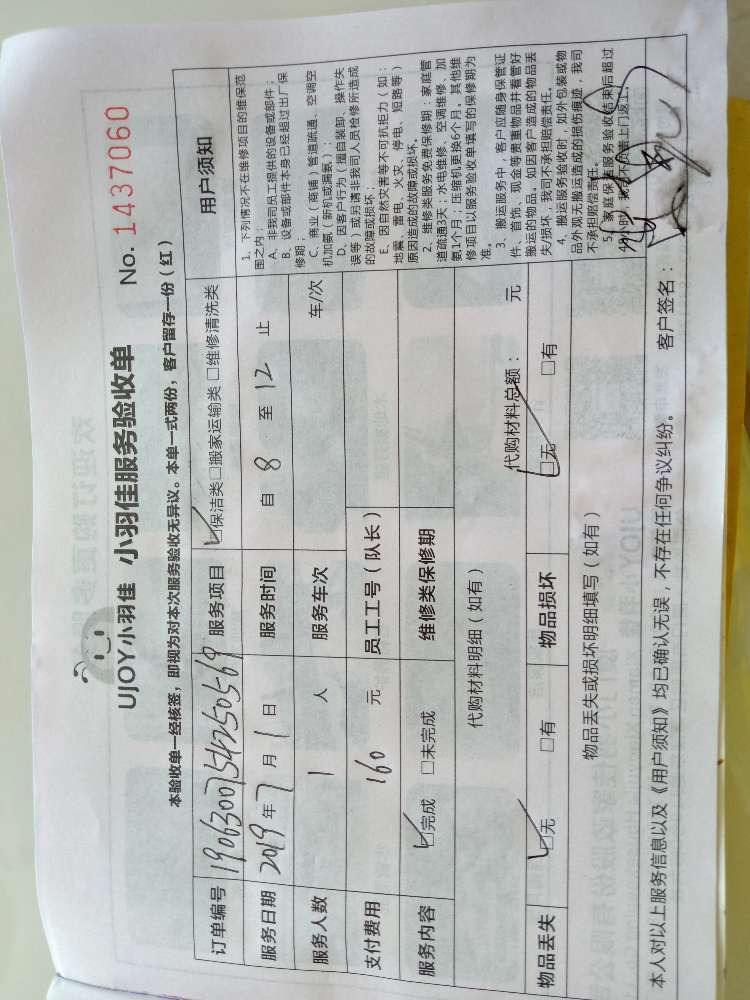 UJOY小羽佳 小羽佳服务验收单 No. 1437060
本验收单一经核签，即视为对本次服务验收无异议。本单一式两份，客户留存一份（红）
订单编号 1906300754250569 服务项目 保洁类 □搬家运输类 □维修清洗类
服务日期 2019年7月1日 服务时间 自 8 至 12 止
服务人数 1 人 服务车次 车/次
支付费用 160 元 员工工号（队长）
服务内容 □完成 □未完成 维修类保修期
代购材料明细（如有）
代购材料总额： 元
物品丢失 □无 □有 物品损坏 □无 □有
物品丢失或损坏明细填写（如有）
用户须知
1、下列情况不在维修项目的维保范
围之内：
A、非我司员工提供的设备或部件；
B、设备或部件本身已经超过出厂保
修期；
C、商业（商铺）管道疏通、空调空
机加氨（新机或漏氨）；
D、因客户行为（擅自装卸、操作失
误等）或另请非我司人员检修所造成
的故障或损坏；
E、因自然灾害等不可抗拒力（如：
地震、雷电、火灾、停电、短路等）
原因造成的故障或损坏。
2、维修类服务免费保修期：家庭管
道疏通3天；水电维修、空调维修、加
氨1个月；压缩机更换6个月。其他维
修项目以服务验收单填写的保修期为
准。
3、搬运服务中，客户应随身保管证
件、首饰、现金等贵重物品并看管好
搬运的物品。如因客户造成的物品丢
失/损坏，我司不承担赔偿责任。
4、搬运服务验收时，如外包装或物
品外观无搬运造成的损伤痕迹，我司
不承担赔偿责任。
5、家庭保洁服务验收结束后超过
小时，我司不负责上门返工。
本人对以上服务信息以及《用户须知》均已确认无误，不存在任何争议纠纷。 客户签名：